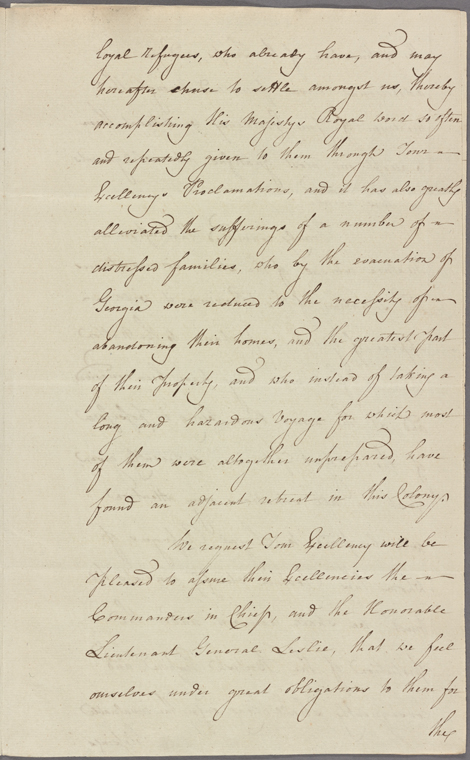 loyal refugees, who already have, and may
hereafter chuse to settle amongst us, thereby
accomplishing His Majestys Royal word so often
and repeatedly given to them through Your
Excellencys Proclamations, and it has also greatly
alleviated the sufferings of a number of
distressed families, who by the evacuation of
Georgia were reduced to the necessity of
abandoning their homes, and the greatest part
of their Property, and who instead of taking a
long and hazardous Voyage for which most
of them were altogether unprepared, have
found an adjacent retreat in this Colony:
We request Your Excellency will be
pleased to assure their Excellencies the
Commanders in Chief, and the Honorable
Lieutenant General Leslie, that we feel
ourselves under great obligations to them for
the